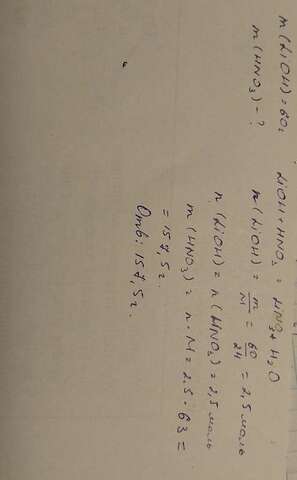 m(LiOH)=60г
m(HNO₃)-?
LiOH+HNO₃ = LiNO₃+H₂O
n(LiOH) = m/M = 60/24 = 2,5 моль
n(LiOH) = n(HNO₃) = 2,5 моль
m(HNO₃) = n · M = 2.5 · 63 =
= 157,5г.
Отв: 157,5г.